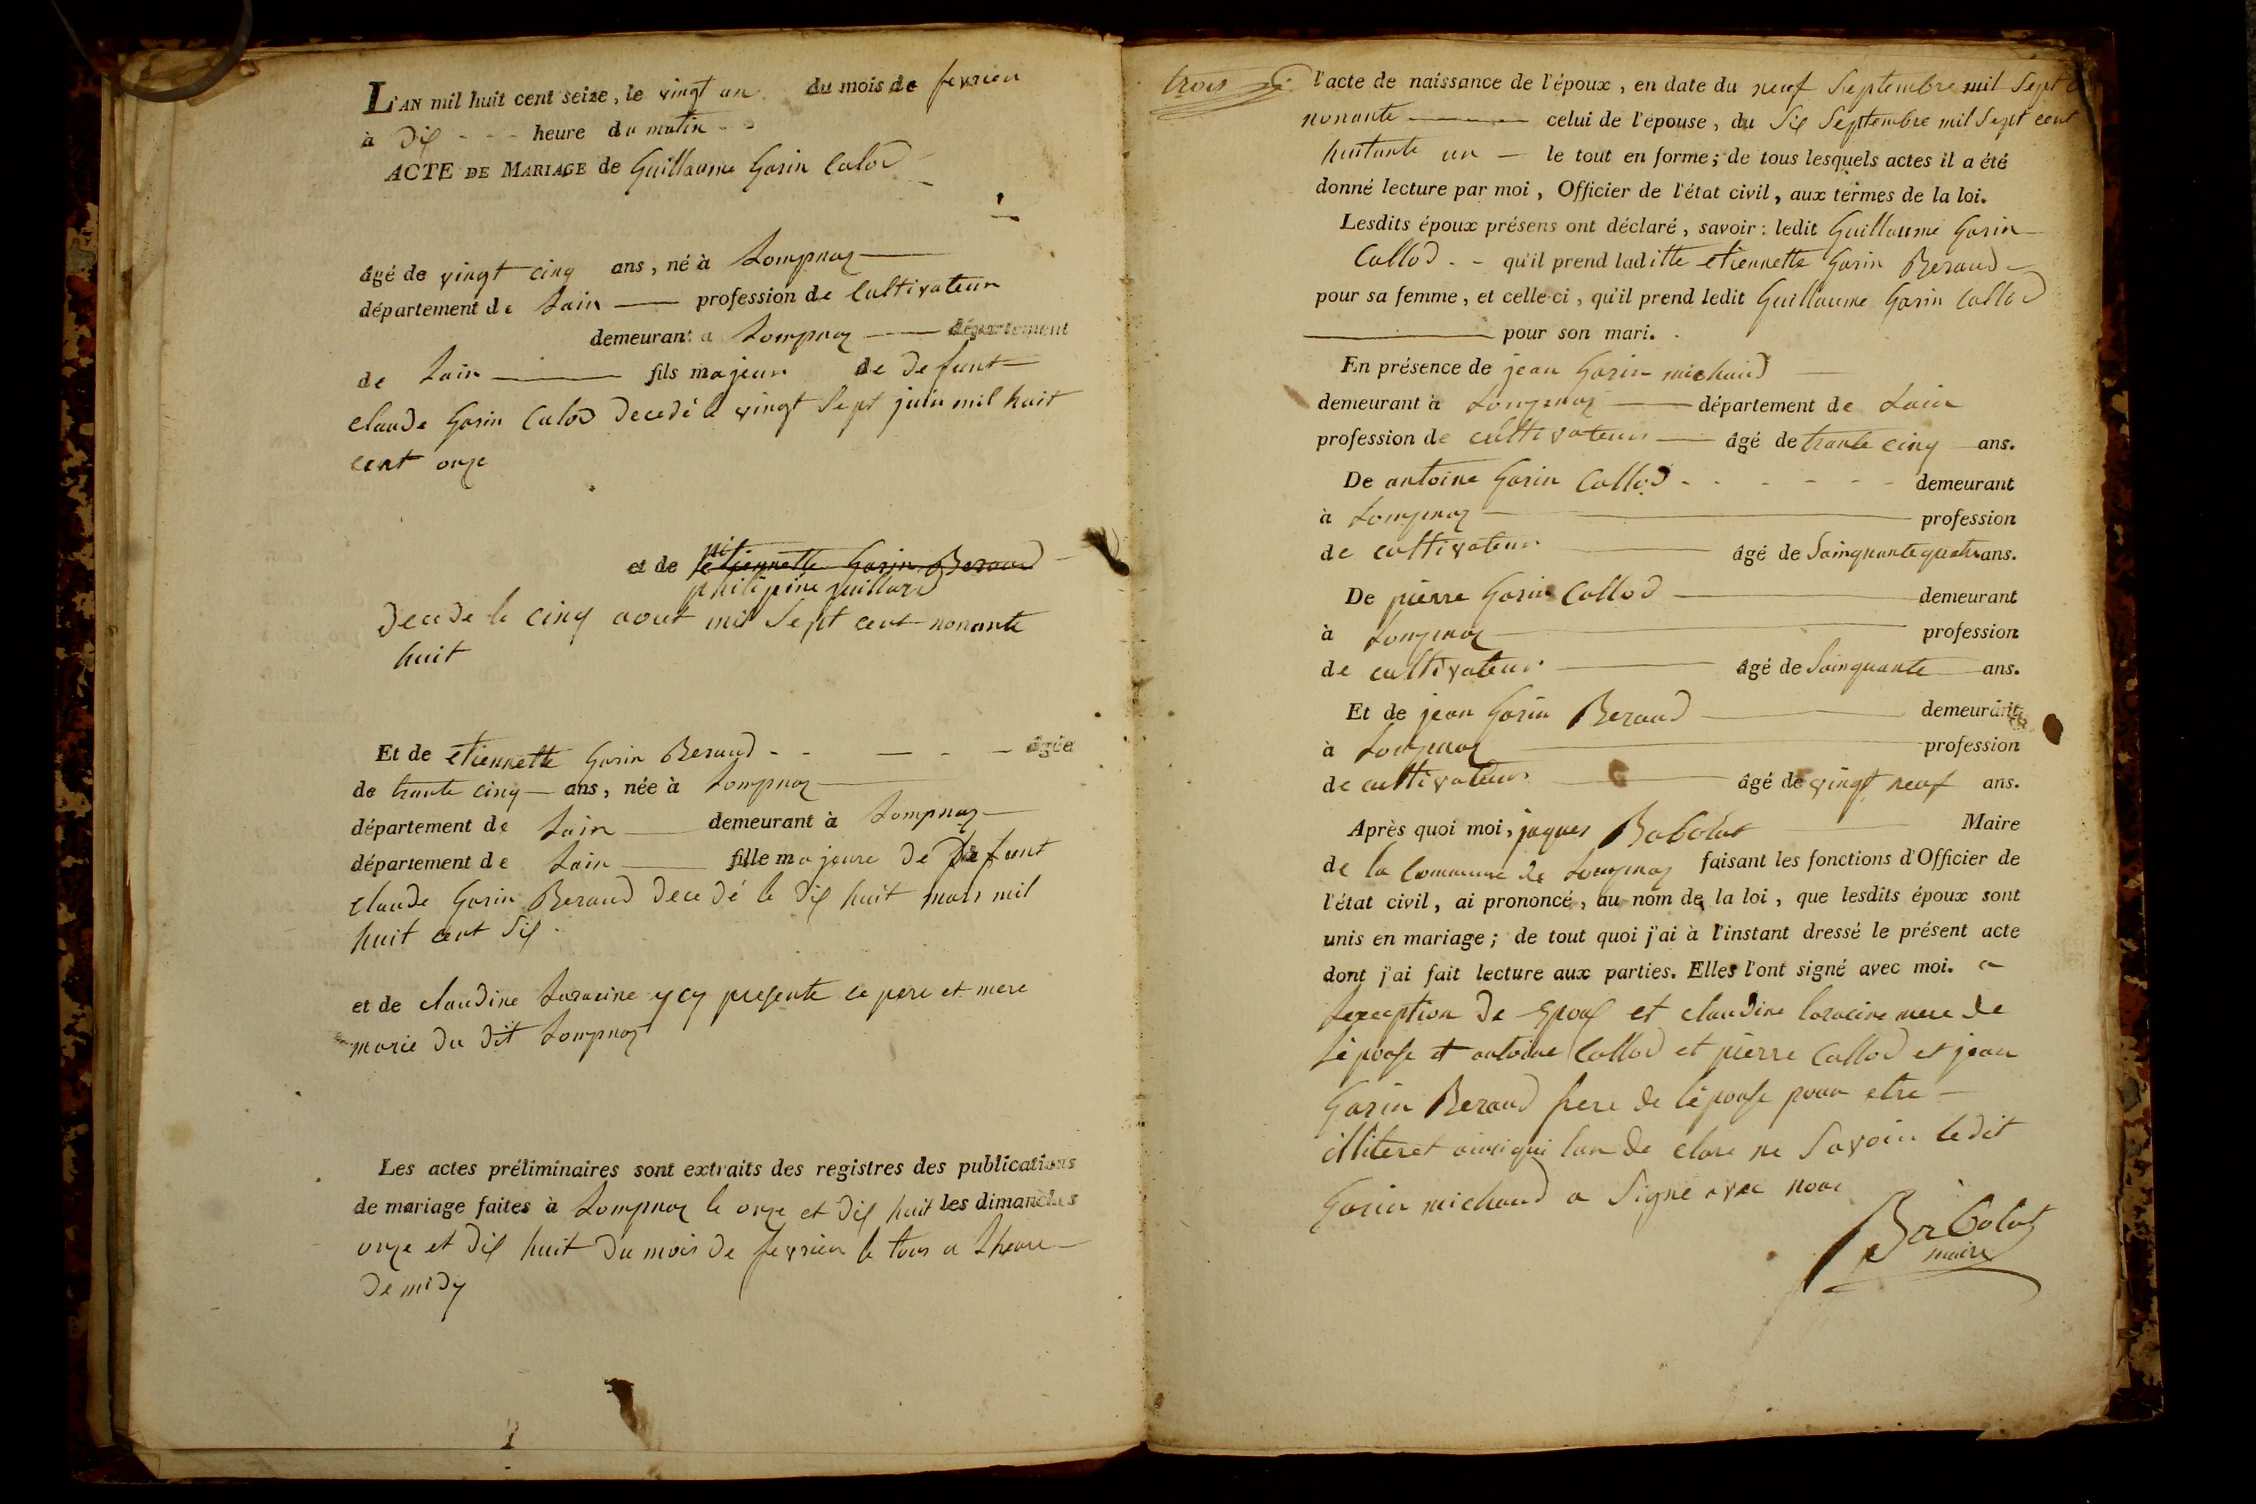 L'AN mil huit cent seize, le vingt un du mois de fevrier
à dix - - - heure du matin - -
ACTE DE MARIAGE de Guillaume Gorin Calod
âgé de vingt cinq ans, né à Lompnaz
département de Lain profession de Cultivateur
demeurant a Lompnaz département
de Lain fils majeur de defunt
claude Gorin Calod decedé le vingt Sept juin mil huit
cent onze
et de etiennette Gorin Beraud
philipine juillard
decede le cinq aout mil Sept cent nonante
huit
Et de etiennette Gorin Beraud - - - - - âgée
de trante cinq ans, née à Lompnaz
département de Lain demeurant à Lompnaz
département de Lain fille majeure de defunt
claude Gorin Beraud decedé le dix huit mars mil
huit cent Six
et de claudine Laracine ycy presente ce pere et mere
marie du dit Lompnaz
Les actes préliminaires sont extraits des registres des publications
de mariage faites à Lompnaz le onze et dix huit les dimanches
onze et dix huit du mois de fevrier le tous a Lheure
de midy
trois
l'acte de naissance de l'époux, en date du neuf Septembre mil Sept
nonante celui de l'épouse, du Six Septembre mil Sept cent
huitante un — le tout en forme; de tous lesquels actes il a été
donné lecture par moi, Officier de l'état civil, aux termes de la loi.
Lesdits époux présens ont déclaré, savoir: ledit Guillaume Gorin
Callod - - qu'il prend laditte etiennette Gorin Beraud
pour sa femme, et celle-ci, qu'il prend ledit Guillaume Gorin Callod
pour son mari.
En présence de jean Gorin michaud
demeurant à Lompnaz département de Lain
profession de cultivateur âgé de trante cinq ans.
De antoine Gorin Callod - - - - - - demeurant
à Lompnaz profession
de cultivateur âgé de Sainquante quatre ans.
De pierre Gorin Callod demeurant
à Lompnaz profession
de cultivateur âgé de Sainquante ans.
Et de jean Gorin Beraud demeurant
à Lompnaz profession
de cultivateur âgé de vingt neuf ans.
Après quoi moi, jaques Babolat Maire
de la Commune de Lompnaz faisant les fonctions d'Officier de
l'état civil, ai prononcé, au nom de la loi, que lesdits époux sont
unis en mariage; de tout quoi j'ai à l'instant dressé le présent acte
dont j'ai fait lecture aux parties. Elles l'ont signé avec moi. a
Lexception de Epoux et claudine laracine mere de
Lépouse et antoine Callod et pierre Callod et jean
Gorin Beraud frere de lépouse pour etre
illiteret ainsi qui lon de clare ne Savoir ledit
Gorin michaud a Signé avec nous
Babolat
maire